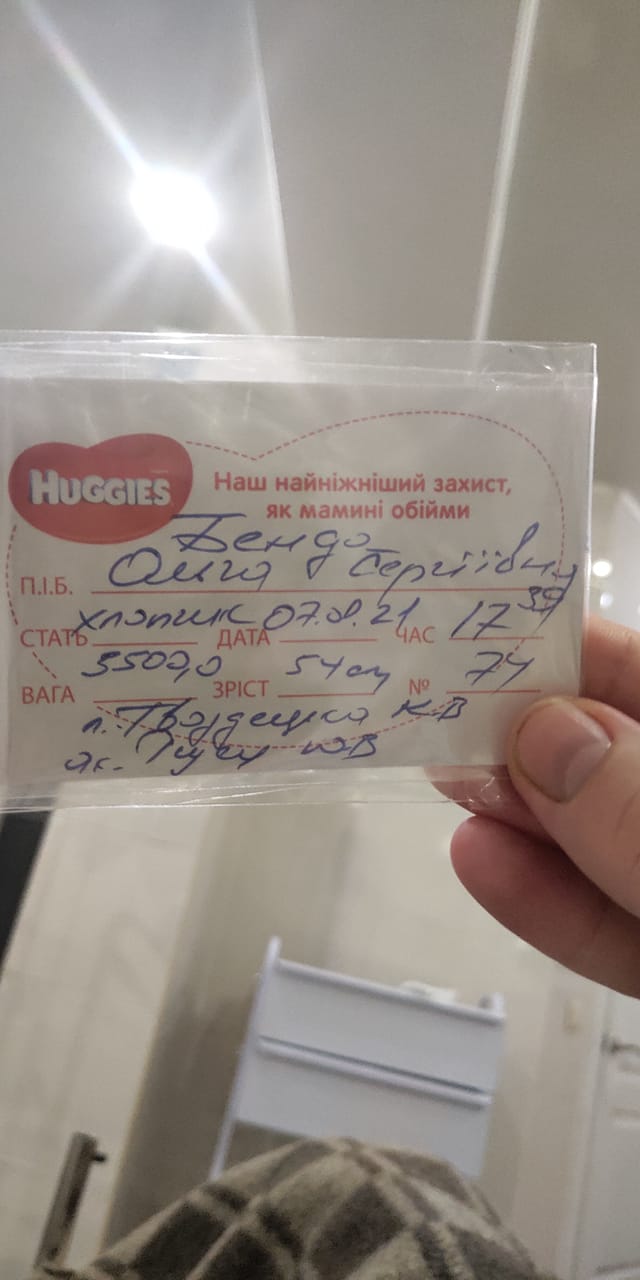 HUGGIES
Наш найніжніший захист,
як мамині обійми
Бендо
П.І.Б. Ольга Сергіївна
СТАТЬ хлопчик ДАТА 07.01.21 ЧАС 17 39
ВАГА 3500,0 ЗРІСТ 54 см № 74
л. КВ
ак. ЮВ